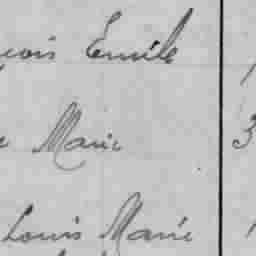 çois Emile
e Marie 3
Louis Marie